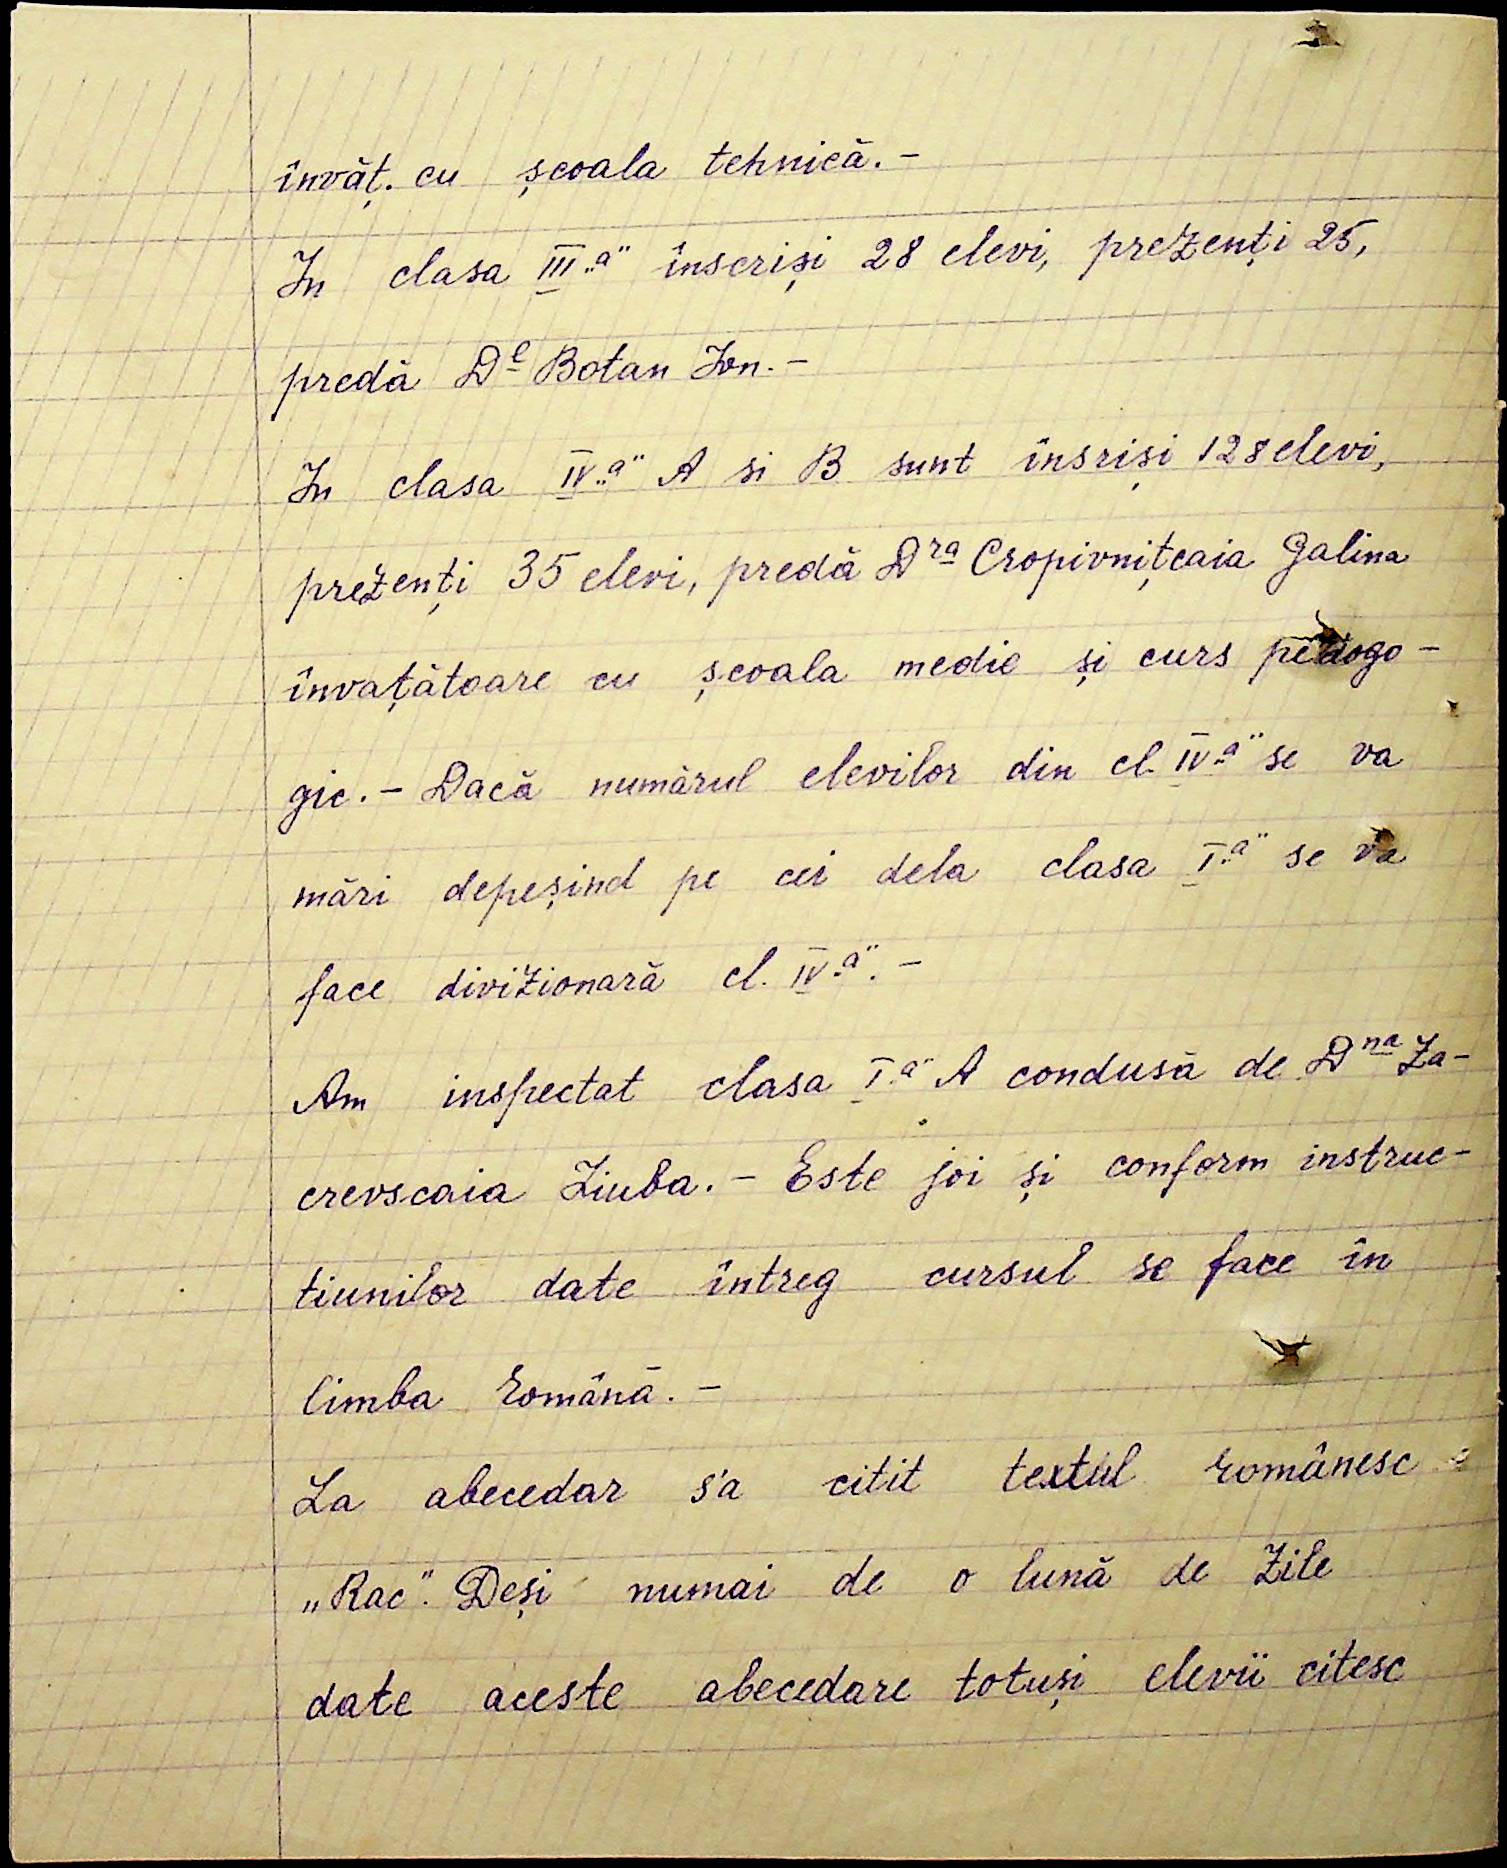 învăț. cu școala tehnică. –
In clasa III „a" înscriși 28 elevi, prezenți 25,
predă Dl Botan Ion. –
In clasa IV „a" A si B sunt însriși 128 elevi,
prezenți 35 elevi, predă Dra Cropivnițcaia Galina
învațătoare cu școala medie și curs pedogo-
gic. – Dacă numărul elevilor din cl. IV „a" se va
mări depeșind pe cei dela clasa I „a" se va
face divizionară cl. IV „a". –
Am inspectat clasa I „a" A condusă de Dna Za-
crevscaia Liuba. – Este joi și conform instruc-
tiunilor date întreg cursul se face în
limba română. –
La abecedar s'a citit textul românesc
„Rac". Deși numai de o lună de zile
date aceste abecedare totuși elevii citesc